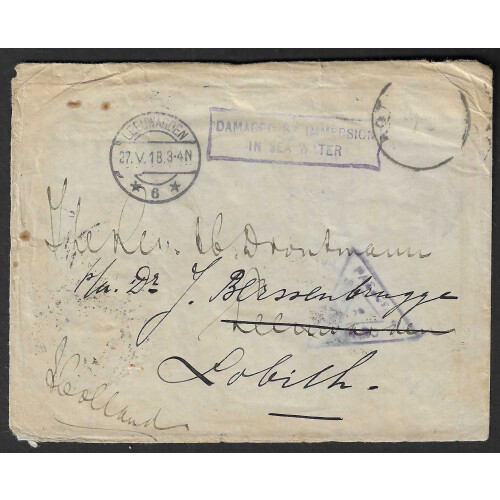 LEEUWARDEN
27.V.18.3-4N
6
DAMAGED BY IMMERSION
IN SEA WATER
PASSED
Drontmann
p/a. Dr J. Berssenbrugge
Leeuwarden
Lobith.
Holland